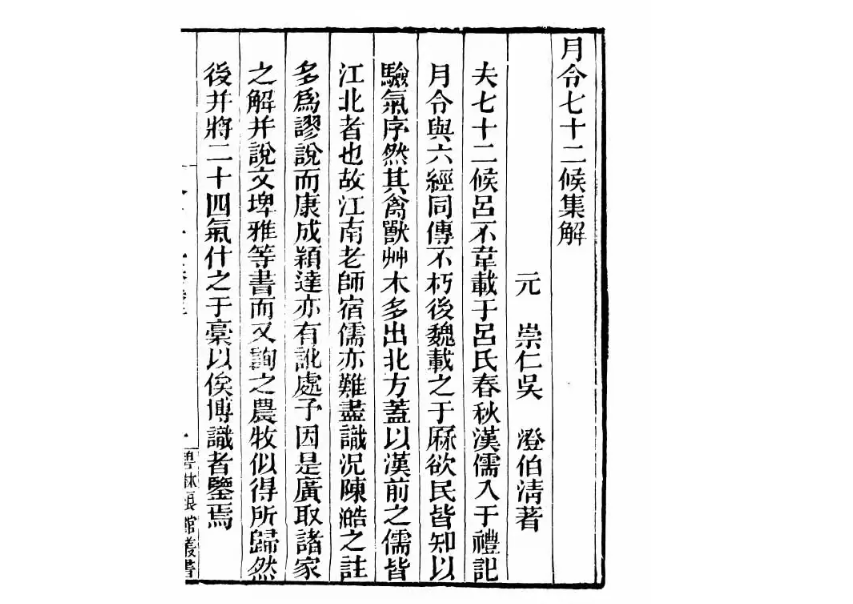 月令七十二候集解
元　崇仁吳　澄伯淸著
夫七十二候呂不韋載于呂氏春秋漢儒入于禮記
月令與六經同傳不朽後魏載之于厤欲民皆知以
驗氣序然其禽獸艸木多出北方蓋以漢前之儒皆
江北者也故江南老師宿儒亦難盡識況陳澔之註
多爲謬說而康成穎達亦有訛處予因是廣取諸家
之解并說文埤雅等書而又詢之農牧似得所歸然
後并將二十四氣什之于稾以俟博識者鑒焉
碧琳琅館叢書